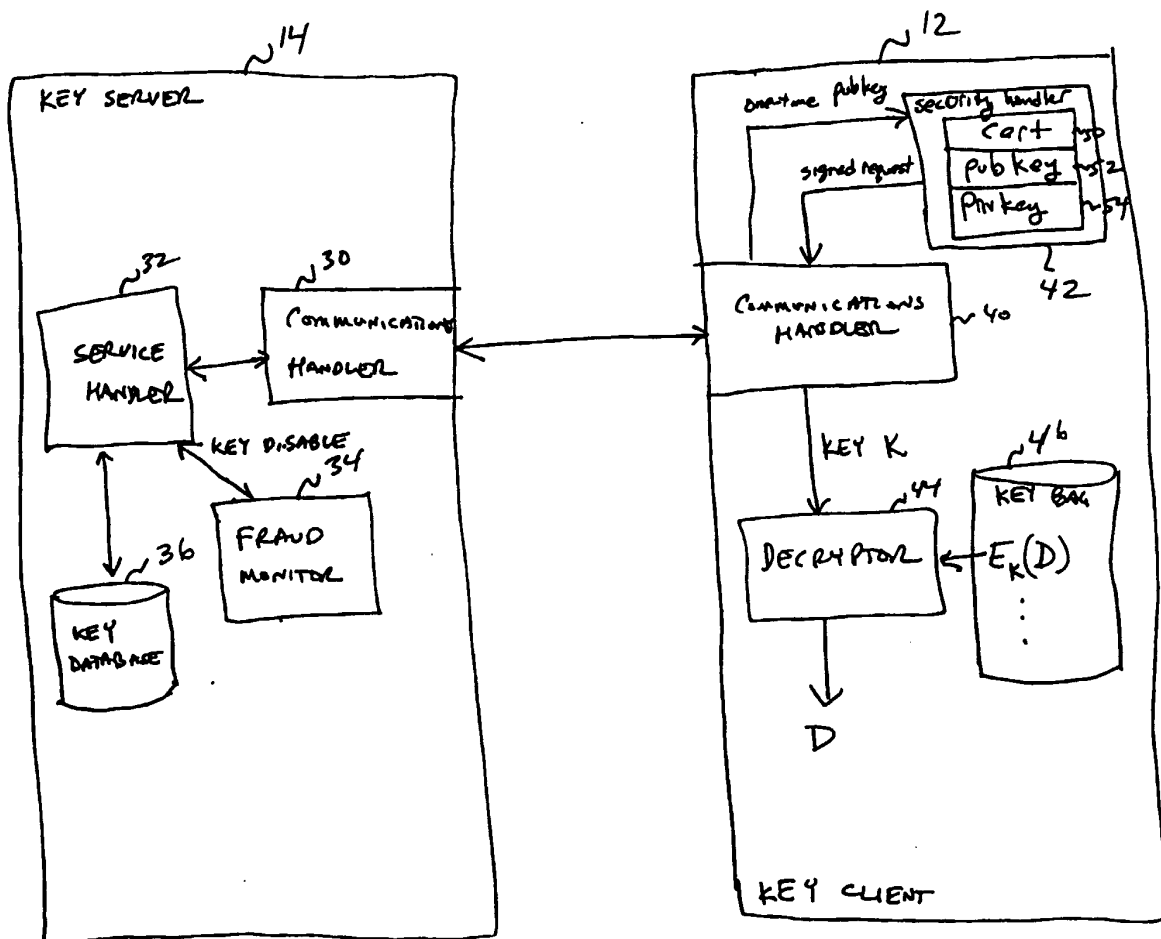 14
KEY SERVER
32
SERVICE
HANDLER
30
COMMUNICATIONS
HANDLER
KEY DISABLE
34
FRAUD
MONITOR
36
KEY
DATABASE
12
one-time pubkey
security handler
cert
50
pubkey
52
privkey
54
42
signed request
COMMUNICATIONS
HANDLER
40
KEY K
44
DECRYPTOR
46
KEY BAG
E_K(D)
D
KEY CLIENT